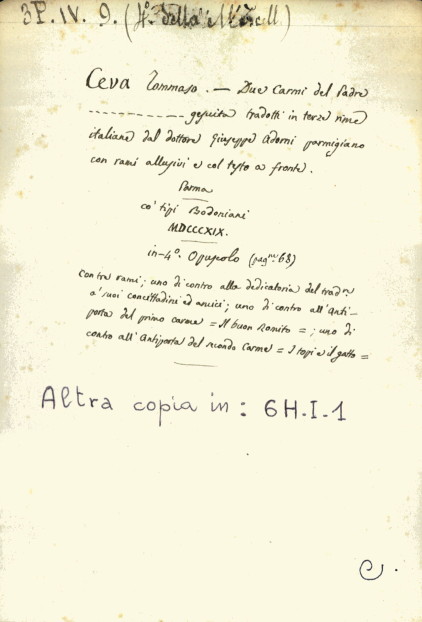 3P. IV. 9. (4º. della
Ceva Tommaso. — Due Carmi del Padre
------------- gesuita tradotti in terza rime
italiane dal dottore Giuseppe Adorni parmigiano
con rami allusivi e col testo a fronte.
Parma
co' tipi Bodoniani
MDCCCXIX.
in-4º. Opuscolo (pagne 68)
Con tre rami; uno di contro alla dedicatoria del tradre
a' suoi concittadini ed amici; uno di contro all'Anti-
porta del primo carme = Il buon Romito = ; uno di
contro all'Antiporta del secondo Carme = I topi e il gatto =
Altra copia in: 6H.I.1
C.